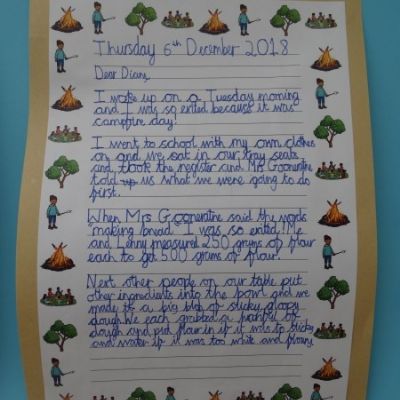 Thursday 6th December 2018
Dear Diary,
I woke up on a Tuesday morning
and I was so exited because it was
campfire day!
I went to school with my own clothes
on and we sat in our tray seats
and took the register and Mrs Goonentine
told us what we were going to do
first.
When Mrs Goonentine said the words
"making bread" I was so exited! Me
and Lenny measured 250 grams of flour
each to get 500 grams of flour.
Next other people on our table put
other ingredients into the bowl and we
made it a big blob of sticky gloopy
dough. We each grabbed a handful of
dough and put flour in if it was to sticky
and water if it was too white and floury.